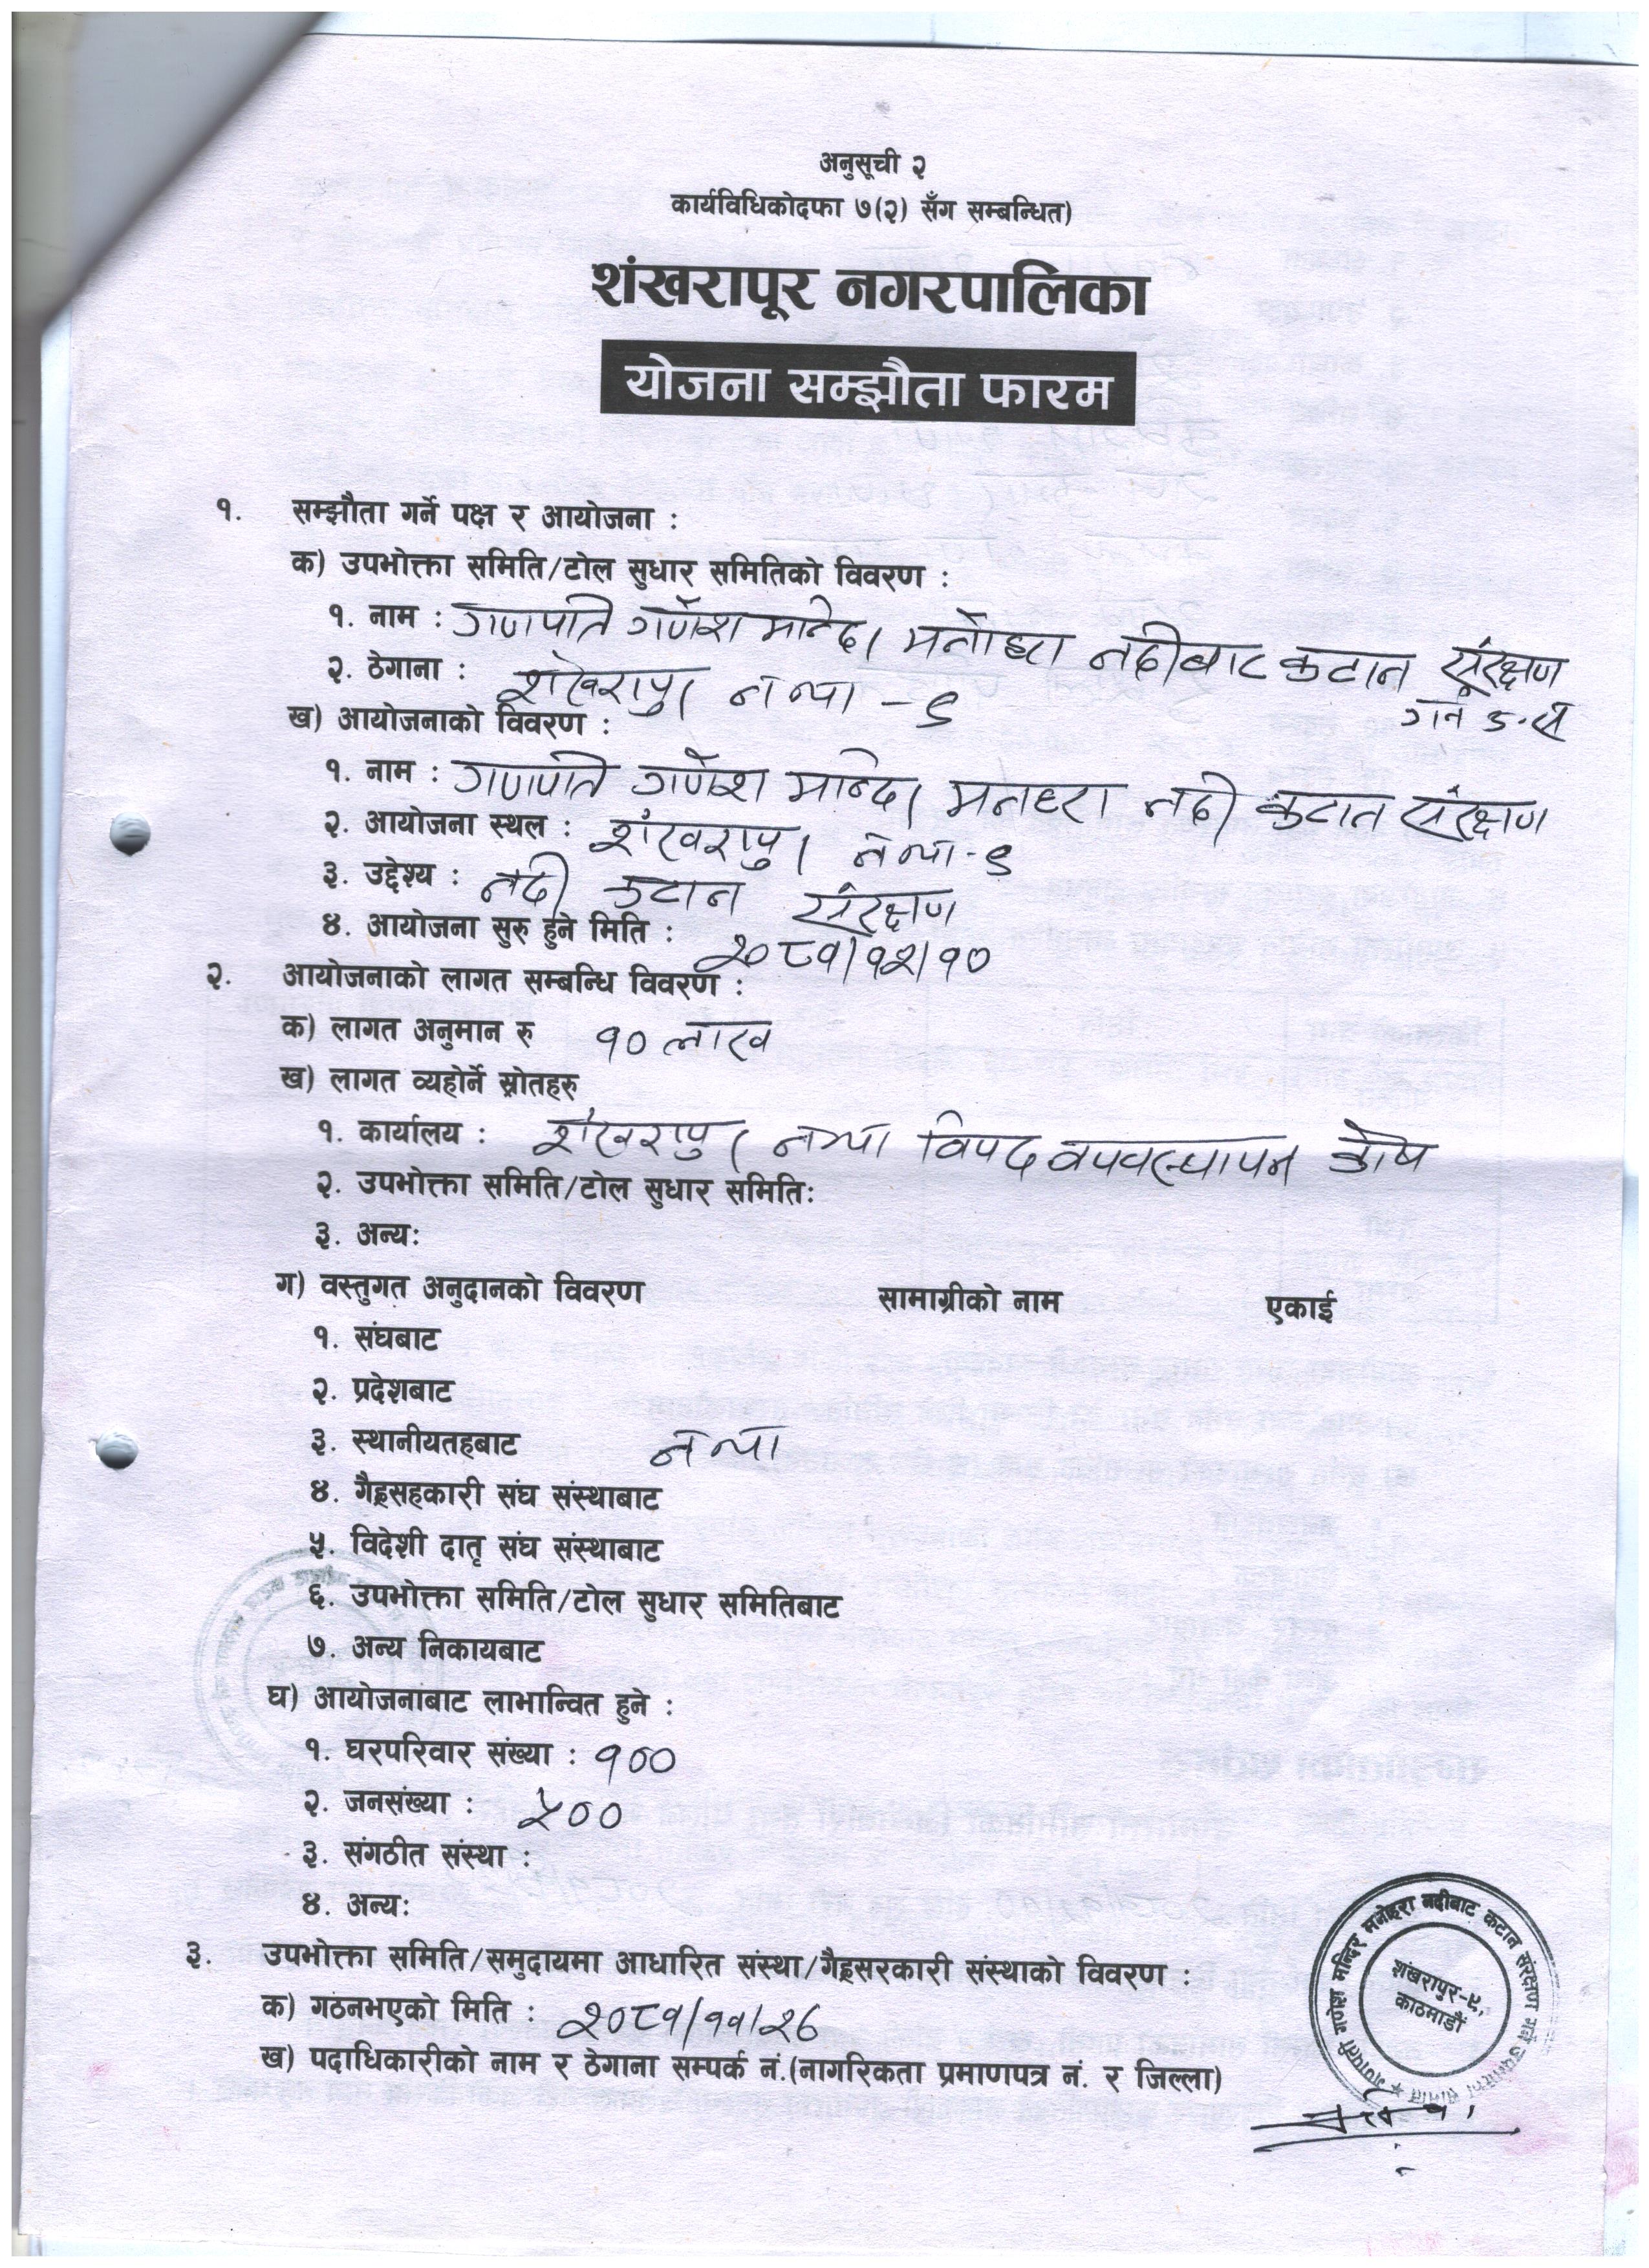 अनुसूची २
कार्यविधिकोदफा ७(२) सँग सम्बन्धित)
शंखरापूर नगरपालिका
योजना सम्झौता फारम
१. सम्झौता गर्ने पक्ष र आयोजना :
क) उपभोक्ता समिति/टोल सुधार समितिको विवरण :
१. नाम : गणपति गणेश मन्दिर मनोहरा नदीबाट कटान संरक्षण
गर्ने उ.स
२. ठेगाना : शंखरापुर न पा - ९
ख) आयोजनाको विवरण :
१. नाम : गणपति गणेश मन्दिर मनहरा नदी कटान संरक्षण
२. आयोजना स्थल : शंखरापुर न पा - ९
३. उद्देश्य : नदी कटान संरक्षण
४. आयोजना सुरु हुने मिति : २०८१/१२/१०
२. आयोजनाको लागत सम्बन्धि विवरण :
क) लागत अनुमान रु १० लाख
ख) लागत व्यहोर्ने स्रोतहरु
१. कार्यालय : शंखरापुर नपा विपद व्यवस्थापन कोष
२. उपभोक्ता समिति/टोल सुधार समिति:
३. अन्य:
ग) वस्तुगत अनुदानको विवरण सामाग्रीको नाम एकाई
१. संघबाट
२. प्रदेशबाट
३. स्थानीयतहबाट न पा
४. गैह्रसहकारी संघ संस्थाबाट
५. विदेशी दातृ संघ संस्थाबाट
६. उपभोक्ता समिति/टोल सुधार समितिबाट
७. अन्य निकायबाट
घ) आयोजनाबाट लाभान्वित हुने :
१. घरपरिवार संख्या : १००
२. जनसंख्या : ५००
३. संगठीत संस्था :
४. अन्य:
३. उपभोक्ता समिति/समुदायमा आधारित संस्था/गैह्रसरकारी संस्थाको विवरण :
क) गठनभएको मिति : २०८१/११/२६
ख) पदाधिकारीको नाम र ठेगाना सम्पर्क नं.(नागरिकता प्रमाणपत्र नं. र जिल्ला)
गणपती गणेश मन्दिर मनोहरा नदीबाट कटान संरक्षण गर्ने उपभोक्ता समिति
शंखरापुर-९,
काठमाडौं